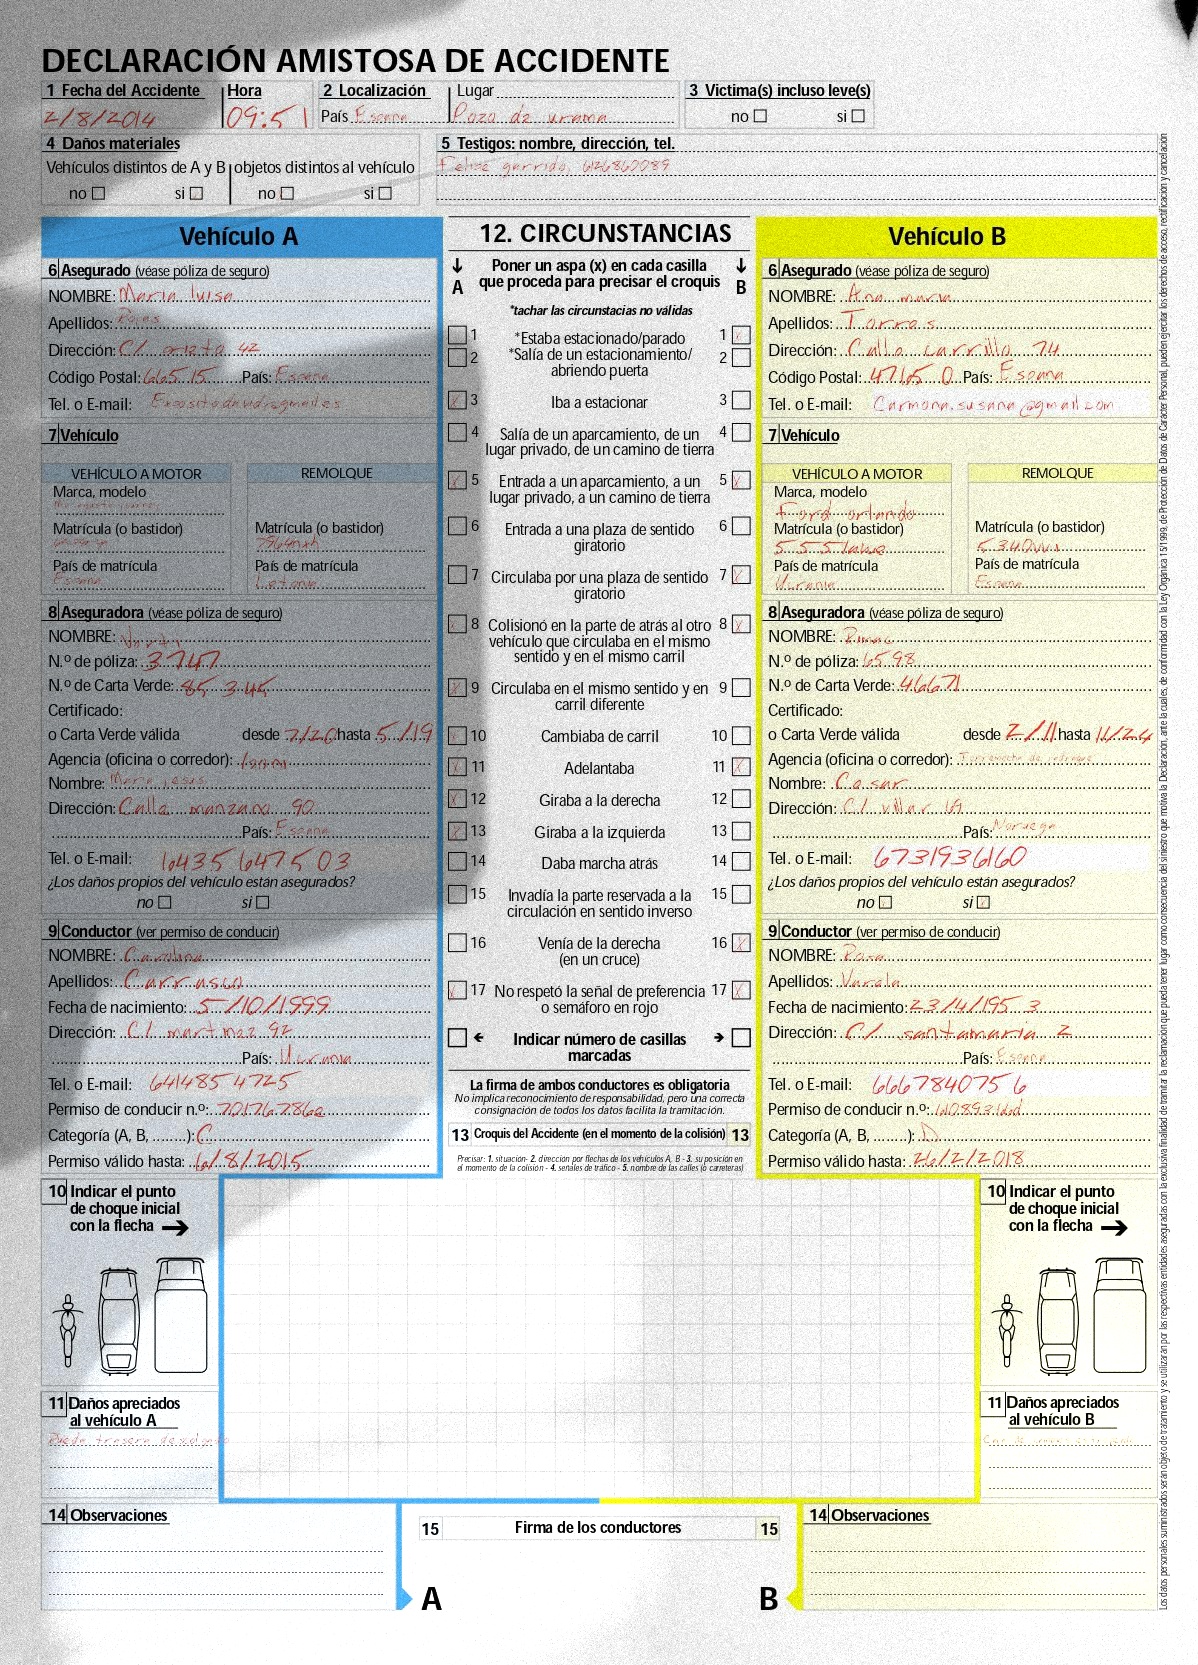 DECLARACIÓN AMISTOSA DE ACCIDENTE
1 Fecha del Accidente Hora 2 Localización Lugar 3 Victima(s) incluso leve(s)
2/8/2014 09:51 País Espana Pozo de urama no si
4 Daños materiales 5 Testigos: nombre, dirección, tel.
Vehículos distintos de A y B objetos distintos al vehículo Felix garrido, 626860089
no si no si
Vehículo A
6 Asegurado (véase póliza de seguro)
NOMBRE: Maria luisa
Apellidos:
Dirección: C/. prieto 42
Código Postal: 66515 País: Espana
Tel. o E-mail:
7 Vehículo
VEHÍCULO A MOTOR REMOLQUE
Marca, modelo
Matrícula (o bastidor) Matrícula (o bastidor)
País de matrícula País de matrícula
Espana Letonia
8 Aseguradora (véase póliza de seguro)
NOMBRE:
N.º de póliza: 3747
N.º de Carta Verde: 85 345
Certificado:
o Carta Verde válida desde 7/20 hasta 5/19
Agencia (oficina o corredor):
Nombre: Maria jesus
Dirección: Calle manzano 90
País: Espana
Tel. o E-mail: 6435647503
¿Los daños propios del vehículo están asegurados?
no si
9 Conductor (ver permiso de conducir)
NOMBRE: Carolina
Apellidos: Carrasco
Fecha de nacimiento: 5/10/1999
Dirección: C/. martinez 92
País: Ucrania
Tel. o E-mail: 6414854725
Permiso de conducir n.º:
Categoría (A, B, ........): C
Permiso válido hasta: 6/8/2015
10 Indicar el punto
de choque inicial
con la flecha
11 Daños apreciados
al vehículo A
14 Observaciones
12. CIRCUNSTANCIAS
Poner un aspa (x) en cada casilla
A que proceda para precisar el croquis B
*tachar las circunstacias no válidas
1 *Estaba estacionado/parado 1
2 *Salía de un estacionamiento/ 2
abriendo puerta
3 Iba a estacionar 3
4 Salía de un aparcamiento, de un 4
lugar privado, de un camino de tierra
5 Entrada a un aparcamiento, a un 5
lugar privado, a un camino de tierra
6 Entrada a una plaza de sentido 6
giratorio
7 Circulaba por una plaza de sentido 7
giratorio
8 Colisionó en la parte de atrás al otro 8
vehículo que circulaba en el mismo
sentido y en el mismo carril
9 Circulaba en el mismo sentido y en 9
carril diferente
10 Cambiaba de carril 10
11 Adelantaba 11
12 Giraba a la derecha 12
13 Giraba a la izquierda 13
14 Daba marcha atrás 14
15 Invadía la parte reservada a la 15
circulación en sentido inverso
16 Venía de la derecha 16
(en un cruce)
17 No respetó la señal de preferencia 17
o semáforo en rojo
Indicar número de casillas
marcadas
La firma de ambos conductores es obligatoria
No implica reconocimiento de responsabilidad, pero una correcta
consignación de todos los datos facilita la tramitación.
13 Croquis del Accidente (en el momento de la colisión) 13
Precisar: 1. situación- 2. dirección por flechas de los vehículos A, B - 3. su posición en
el momento de la colisión - 4. señales de tráfico - 5. nombre de las calles (o carreteras)
15 Firma de los conductores 15
A B
Vehículo B
6 Asegurado (véase póliza de seguro)
NOMBRE: Ana maria
Apellidos: Torres
Dirección: Calle carrillo 74
Código Postal: 47165 0 País: Espana
Tel. o E-mail: Carmona.susana@gmail.com
7 Vehículo
VEHÍCULO A MOTOR REMOLQUE
Marca, modelo
Ford orlando
Matrícula (o bastidor) Matrícula (o bastidor)
País de matrícula País de matrícula
Ucrania Espana
8 Aseguradora (véase póliza de seguro)
NOMBRE:
N.º de póliza: 6598
N.º de Carta Verde: 46671
Certificado:
o Carta Verde válida desde 2/11 hasta 11/24
Agencia (oficina o corredor):
Nombre: Cesar
Dirección: C/. villar 19
País: Noruega
Tel. o E-mail: 6731936160
¿Los daños propios del vehículo están asegurados?
no si
9 Conductor (ver permiso de conducir)
NOMBRE: Rosa
Apellidos: Varela
Fecha de nacimiento: 23/4/1953
Dirección: C/. santamaria 2
País: Espana
Tel. o E-mail: 6667840756
Permiso de conducir n.º:
Categoría (A, B, ........): D
Permiso válido hasta: 26/2/2018
10 Indicar el punto
de choque inicial
con la flecha
11 Daños apreciados
al vehículo B
14 Observaciones
Los datos personales suministrados seran objeto de tratamiento y se utilizaran por las respectivas entidades aseguradas con la exclusiva finalidad de tramitar la reclamación que pueda tener lugar como consecuencia del siniestro que motiva la Declaración, ante la cuales, de conformidad con la Ley Orgánica 15/1999, de Protección de Datos de Carácter Personal, pueden ejercitar los derechos de acceso, rectificación y cancelación